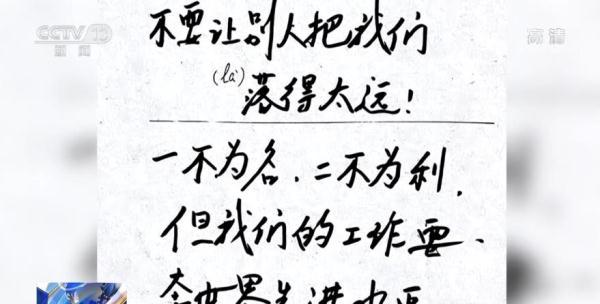 CCTV 13
新闻
高清
不要让别人把我们
(là)
落得太远!
一不为名、二不为利,
但我们的工作要、
奔世界先进水平